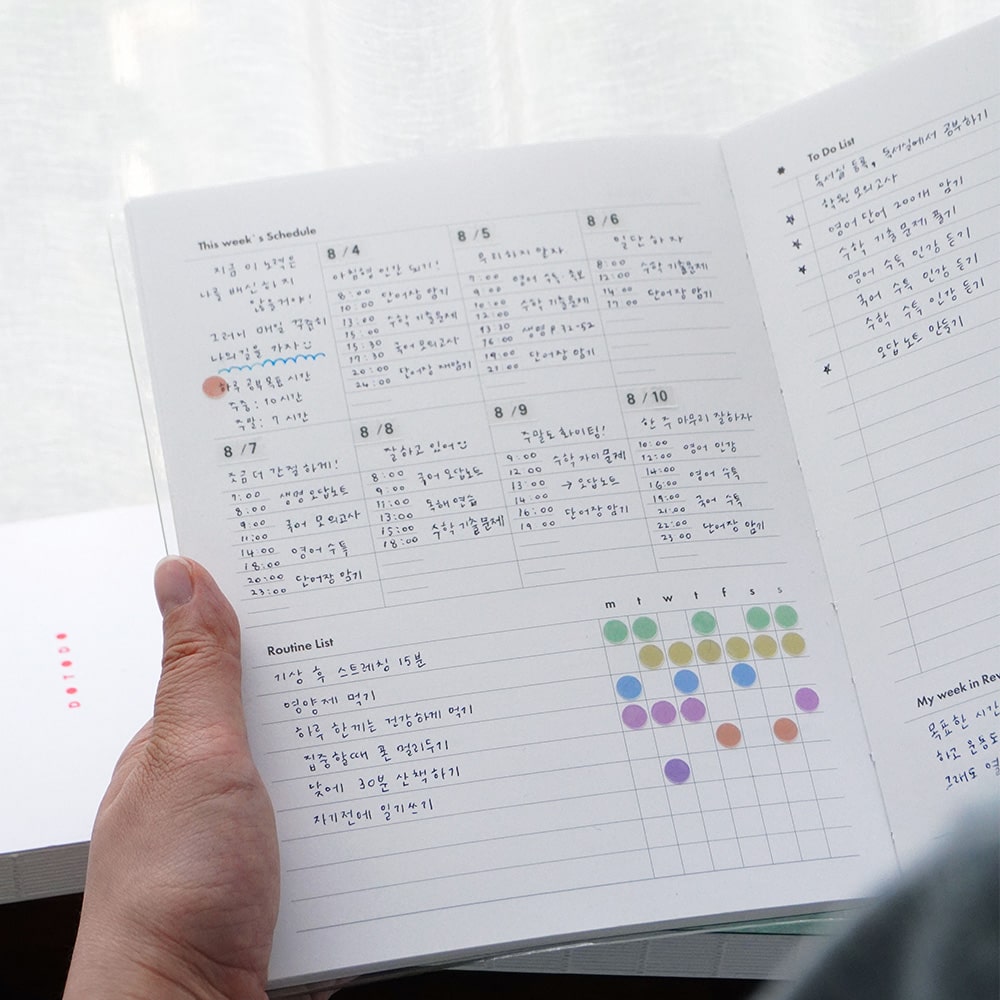 This week's Schedule
지금 이 노력은
나를 배신하지
않을거야!
그러니 매일 꾹꾹히
나의길을 가자
하루 공부목표 시간
주중 : 10시간
주말 : 7시간
8 / 4
아침형 인간 되기!
8:00
10:00 단어장 암기
13:00 수학 기출문제
15:00
15:30 국어 모의고사
17:30
20:00 단어장 재암기
24:00
8 / 5
무리하지 말자
7:00 영어 수특
9:00
10:00 수학 기출문제
12:00
13 30 생명 P 32-52
16 00
19:00 단어장 암기
21:00
8 / 6
일단 하자
8:00 수학 기출문제
12:00
14 00 단어장 암기
17 00
8 / 7
조금 더 간절하게!
7:00 생명 오답노트
8:00
9:00 국어 모의고사
11:00
14 00 영어 수특
18:00
20:00 단어장 암기
23:00
8 / 8
잘하고 있어
8:00 국어 오답노트
9:00
11:00 독해 연습
13:00
15:00 수학 기출문제
18:00
8 / 9
주말도 화이팅!
9:00 수학 자이 문제
12 00
13:00 → 오답노트
14:00
16:00 단어장 암기
19 00
8 / 10
한 주 마무리 잘하자
10:00 영어 인강
12:00
14:00 영어 수특
16:00
19:00 국어 수특
21:00
22:00 단어장 암기
23 00
Routine List
m t w t f s s
기상 후 스트레칭 15분
영양제 먹기
하루 한끼는 건강하게 먹기
집중할때 폰 멀리두기
낮에 30분 산책하기
자기전에 일기쓰기
To Do List
독서실 등록, 독서실에서 공부하기
학원 모의고사
영어 단어 200개 암기
수학 기출 문제 풀기
영어 수특 인강 듣기
국어 수특 인강 듣기
수학 수특 인강 듣기
오답노트 만들기
My week in Rev
목표한 시간
하고 운동도
그래도
DOTODO